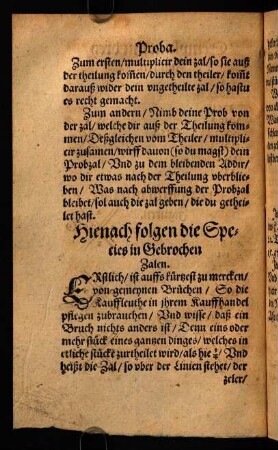 Proba.
Zum ersten/ multiplicir dein zal/ so sie auß
der theilung kom̃en/ durch den theiler/ kom̃t
darauß wider dein vngetheilte zal/ so hastu
es recht gemacht.
Zum andern/ Nimb deine Prob von
der zal/ welche dir auß der Theilung kom-
men/ Deßgleichen vom Theiler/ multipli-
cir zusamen/ wirff dauon (so du magst) dein
Probzal/ Vnd zu dem bleibenden Addir/
wo dir etwas nach der Theilung vberblie-
ben/ Was nach abwerffung der Probzal
bleibet/ sol auch die zal geben/ die du gethei-
let hast.
Hienach folgen die Spe-
cies in Gebrochen
Zalen.
ERstlich/ ist auffs kürtzest zu mercken/
von gemeynen Brüchen/ So die
Kauffleuthe in jhrem Kauffhandel
pflegen zubrauchen/ Vnd wisse/ daß ein
Bruch nichts anders ist/ Denn eins oder
mehr stück eines gantzen dinges/ welches in
etliche stücke zurtheilet wird/ als hie/ Vnd
heißt die Zal/ so vber der Linien stehet/ der
zeler/